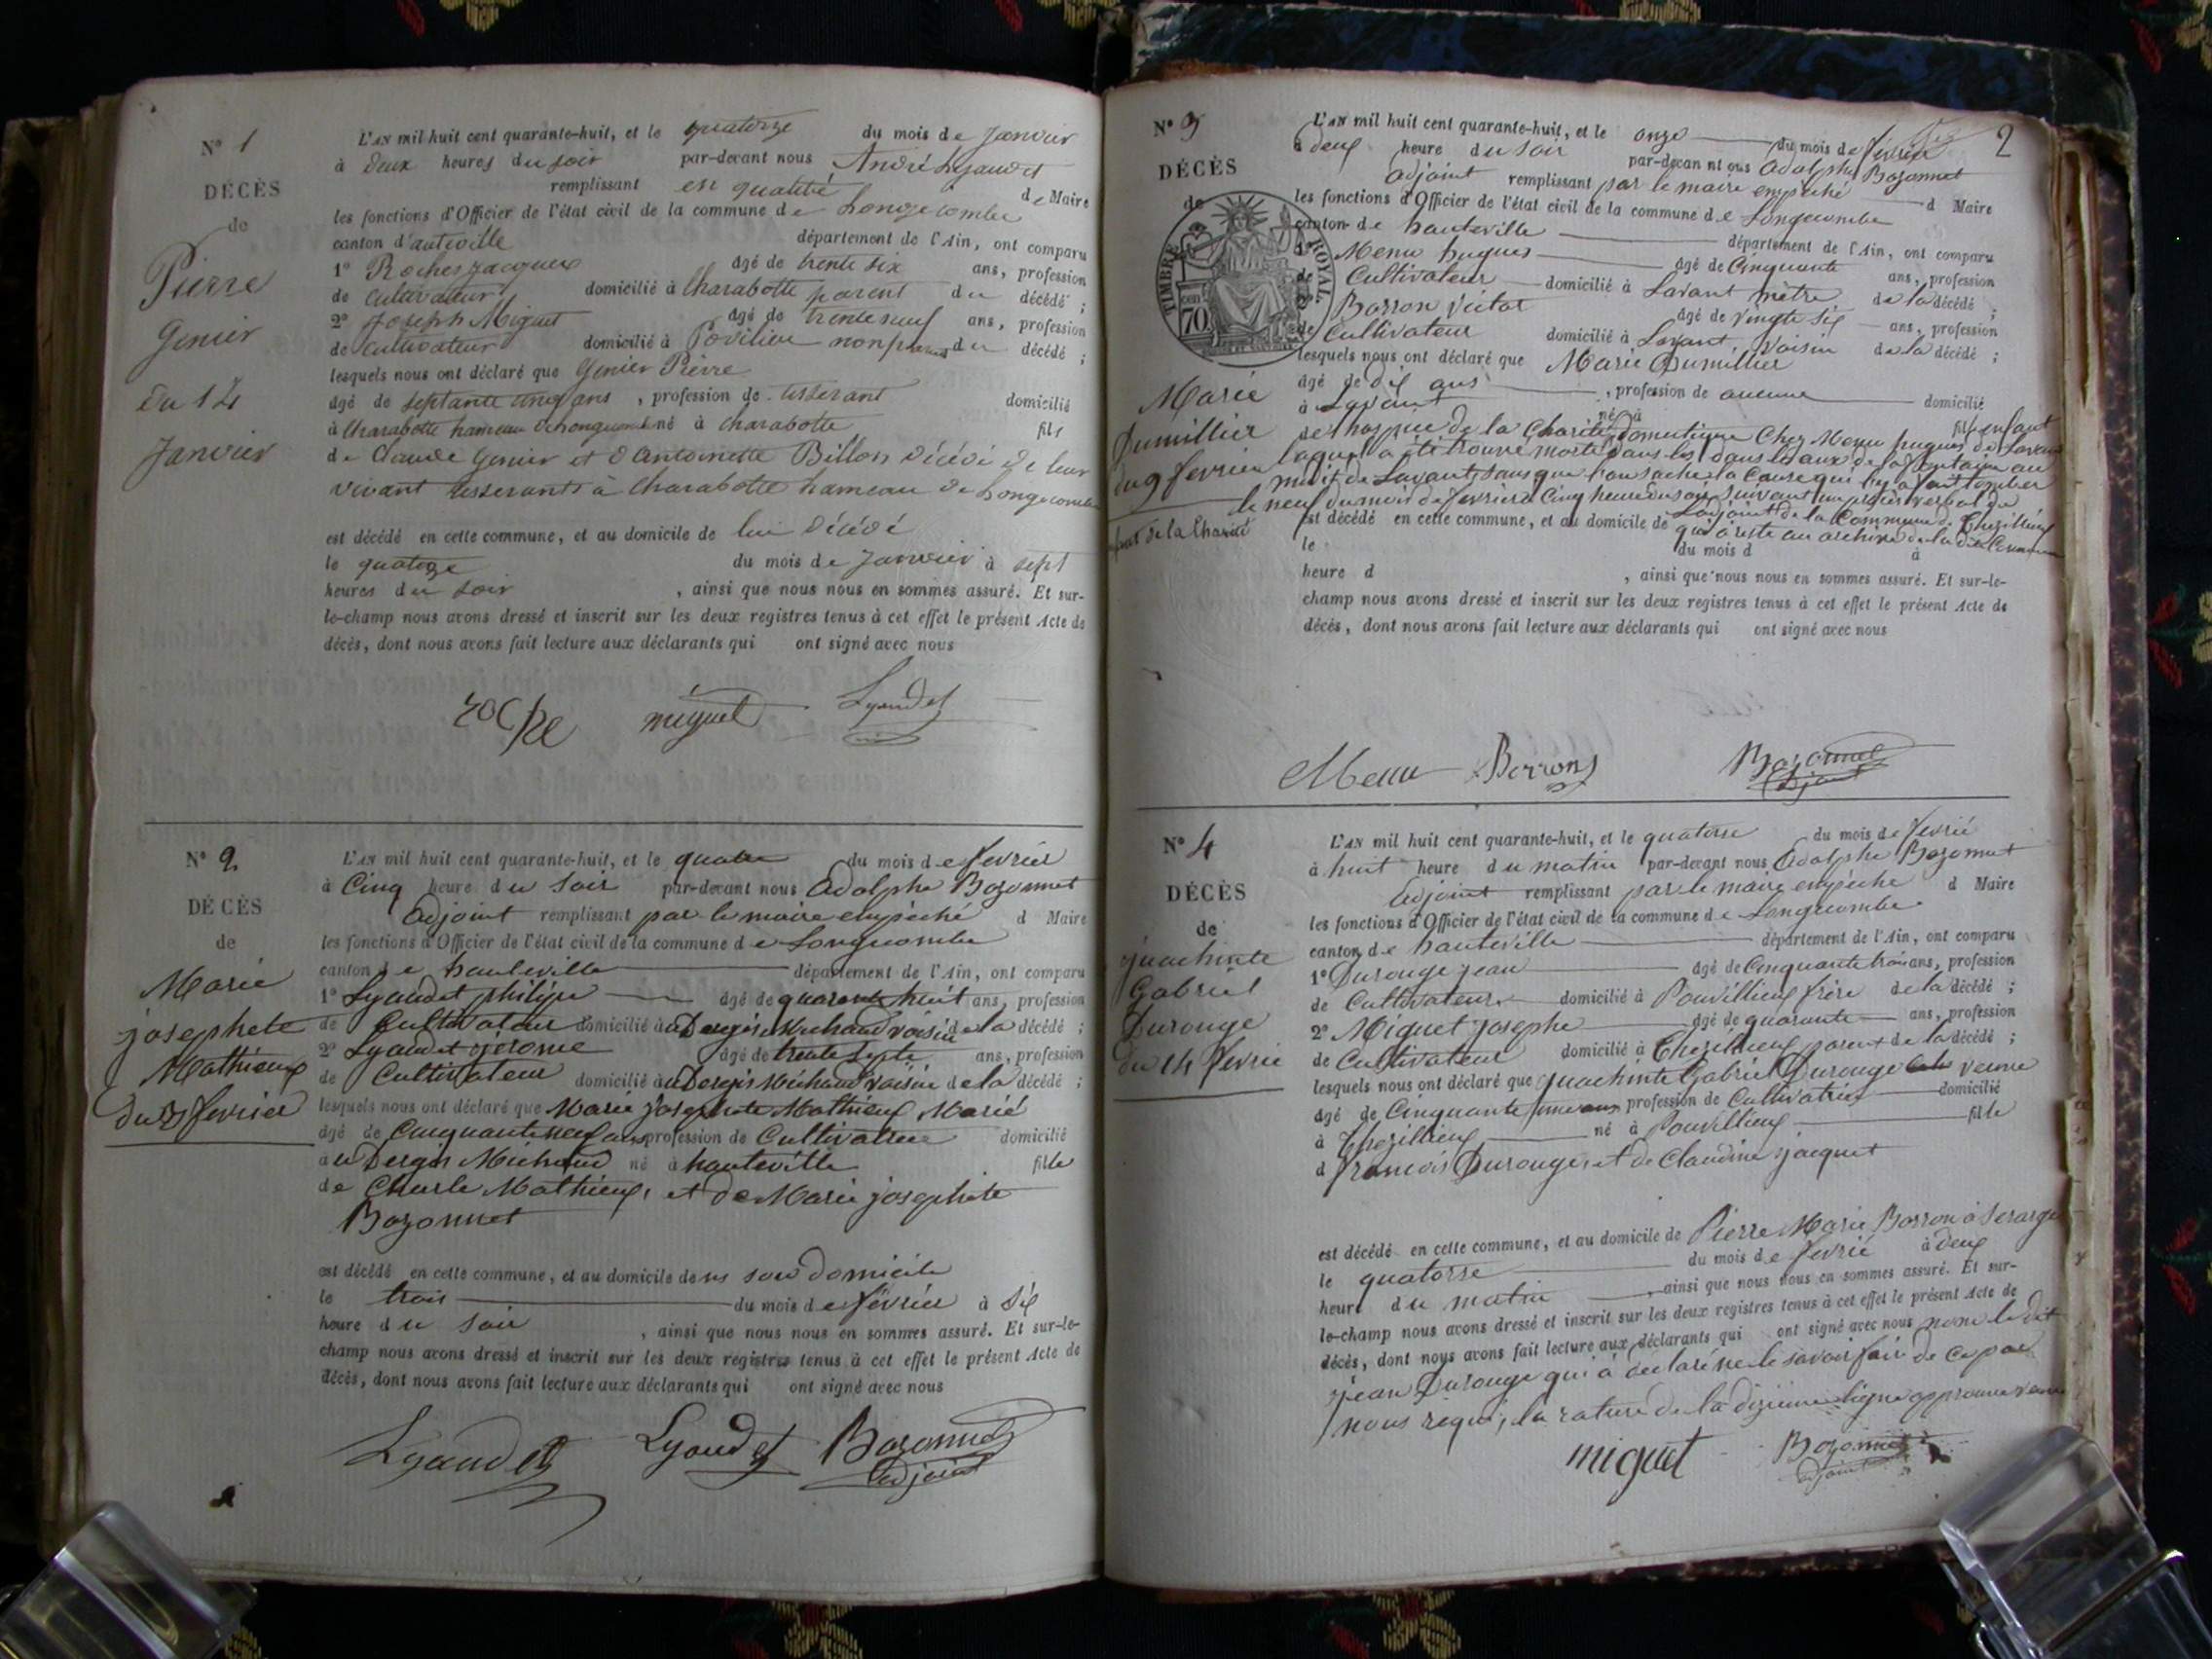 N° 1
DÉCÈS
de
Pierre
Genier
du 14
Janvier
L'AN mil huit cent quarante-huit, et le quatorze du mois de Janvier
à deux heures du soir par-devant nous André Lyaudet
remplissant en qualité de Maire
les fonctions d'Officier de l'état civil de la commune de Longecombe
canton d'auteville département de l'Ain, ont comparu
1° Roche Jacques âgé de trente six ans, profession
de Cultivateur domicilié à Charabotte parent du décédé ;
2° Joseph Miguet âgé de trente neuf ans, profession
de Cultivateur domicilié à non parent du décédé ;
lesquels nous ont déclaré que Genier Pierre
âgé de septante cinq ans, profession de tisserant domicilié
à Charabotte hameau de longecombe né à Charabotte fils
de Claude Genier et d'antoinette Billon décédé de leur
vivant tisserants à Charabotte hameau de Longecombe
est décédé en cette commune, et au domicile de lui décédé
le quatorze du mois de Janvier à sept
heures du soir, ainsi que nous nous en sommes assuré. Et sur-
le-champ nous avons dressé et inscrit sur les deux registres tenus à cet effet le présent Acte de
décès, dont nous avons fait lecture aux déclarants qui ont signé avec nous
roche miguet Lyaudet
N° 2
DÉCÈS
de
Marie
josephete
Mathieux
du 3 fevrier
L'AN mil huit cent quarante-huit, et le quatre du mois de fevrier
à Cinq heure du soir par-devant nous Adolphe Bozonnet
Adjoint remplissant par le maire empéché d Maire
les fonctions d'Officier de l'état civil de la commune de Longecombe
canton de hauteville département de l'Ain, ont comparu
1° Lyaudet philipe âgé de quarante huit ans, profession
de Cultivateur domicilié au Dergis Michaud voisin de la décédé ;
2° Lyaudet jerome âgé de trente septe ans, profession
de Cultivateur domicilié au Dergis Michaud voisin de la décédé ;
lesquels nous ont déclaré que Marie josephete Mathieux Marié
âgé de Cinquante neuf ans profession de Cultivatrice domicilié
au Dergis Michaud né à hauteville fille
de Charle Mathieux, et de Marie josephete
Bozonnet
est décédé en cette commune, et au domicile dens son domicile
le trois du mois de février à Six
heure du soir, ainsi que nous nous en sommes assuré. Et sur-le-
champ nous avons dressé et inscrit sur les deux registres tenus à cet effet le présent Acte de
décès, dont nous avons fait lecture aux déclarants qui ont signé avec nous
Lyaudet Lyaudet Bozonnet
adjoint
2
N° 3
DÉCÈS
de
TIMBRE ROYAL
70
Marie
Dumillier
du 9 fevrier
enfant de la Charité
L'AN mil huit cent quarante-huit, et le onze du mois de fevrier
à deux heure du soir par-devan nt ous Adolphe Bozonnet
adjoint remplissant par le maire empéché d Maire
les fonctions d'Officier de l'état civil de la commune de Longecombe
canton de hauteville département de l'Ain, ont comparu
1° Menu hugues âgé de Cinquante ans, profession
de Cultivateur domicilié à Lavant métre de la décédé ;
2° Borron Victor âgé de vingte six ans, profession
de Cultivateur domicilié à Lavant voisin de la décédé ;
lesquels nous ont déclaré que Marie Dumillier
âgé de dix ans, profession de aucune domicilié
à Lavant né à fille enfant
de hospice de la Charité domestique Chez Menu hugues de Lavant
laquel a été trouvé morte dans les dans les aux de la fontaine au
midit de Lavant, sans que l'on sache la Cause qui l'y a fait tomber
le neuf du mois de fevrier à Cinq heure du soir suivant un procès verbal de
est décédé en cette commune, et au domicile de Ladjoint de la Commune de Thezillieux
qui à reste au archive de la dite Commune
le du mois d à
heure d, ainsi que nous nous en sommes assuré. Et sur-le-
champ nous avons dressé et inscrit sur les deux registres tenus à cet effet le présent Acte de
décès, dont nous avons fait lecture aux déclarants qui ont signé avec nous
Menu Borron Bozonnet
adjoint
N° 4
DÉCÈS
de
juachinte
Gabriel
Durouge
du 14 fevrié
L'AN mil huit cent quarante-huit, et le quatorse du mois de fevrié
à huit heure du matin par-devant nous Adolphe Bozonnet
Adjoint remplissant par le maire empéche d Maire
les fonctions d'Officier de l'état civil de la commune de Longecombe
canton de hauteville département de l'Ain, ont comparu
1° Durouge jean âgé de Cinquante trois ans, profession
de Cultivateur domicilié à Pouvillieux frère de la décédé ;
2° Miguet josephe âgé de quarante ans, profession
de Cultivateur domicilié à Thezillieux parent de la décédé ;
lesquels nous ont déclaré que juachinte Gabriel Durouge veuve
âgé de Cinquante profession de Cultivatrice domicilié
à Thezillieux né à Pouvillieux fille
d françois Durouge, et de Claudine jacquet
est décédé en cette commune, et au domicile de Pierre Marie Borron à
le quatorse du mois de fevrié à deux
heure du matin, ainsi que nous nous en sommes assuré. Et sur-
le-champ nous avons dressé et inscrit sur les deux registres tenus à cet effet le présent Acte de
décès, dont nous avons fait lecture aux déclarants qui ont signé avec nous non le dit
jean Durouge qui à déclaré ne le savoir fair de ce par
nous requi, la rature de la dizieme ligne approuvé veuve
miguet Bozonnet
adjoint